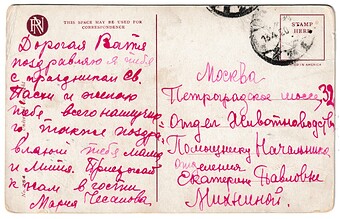 THIS SPACE MAY BE USED FOR
CORRESPONDENCE
STAMP
HERE
Дорогая Ватя
поздравляю я тебя
с праздником Св.
Пасхи и желаю
тебе всего наилучше
го, также поздра
вляют тебя мама
и Митя. Приезжай
к нам в гости
Мария
Москва
Петроградское шоссе, 32
Отдел Животноводства
Помощнику Начальника
Отделения
Екатерине Павловне